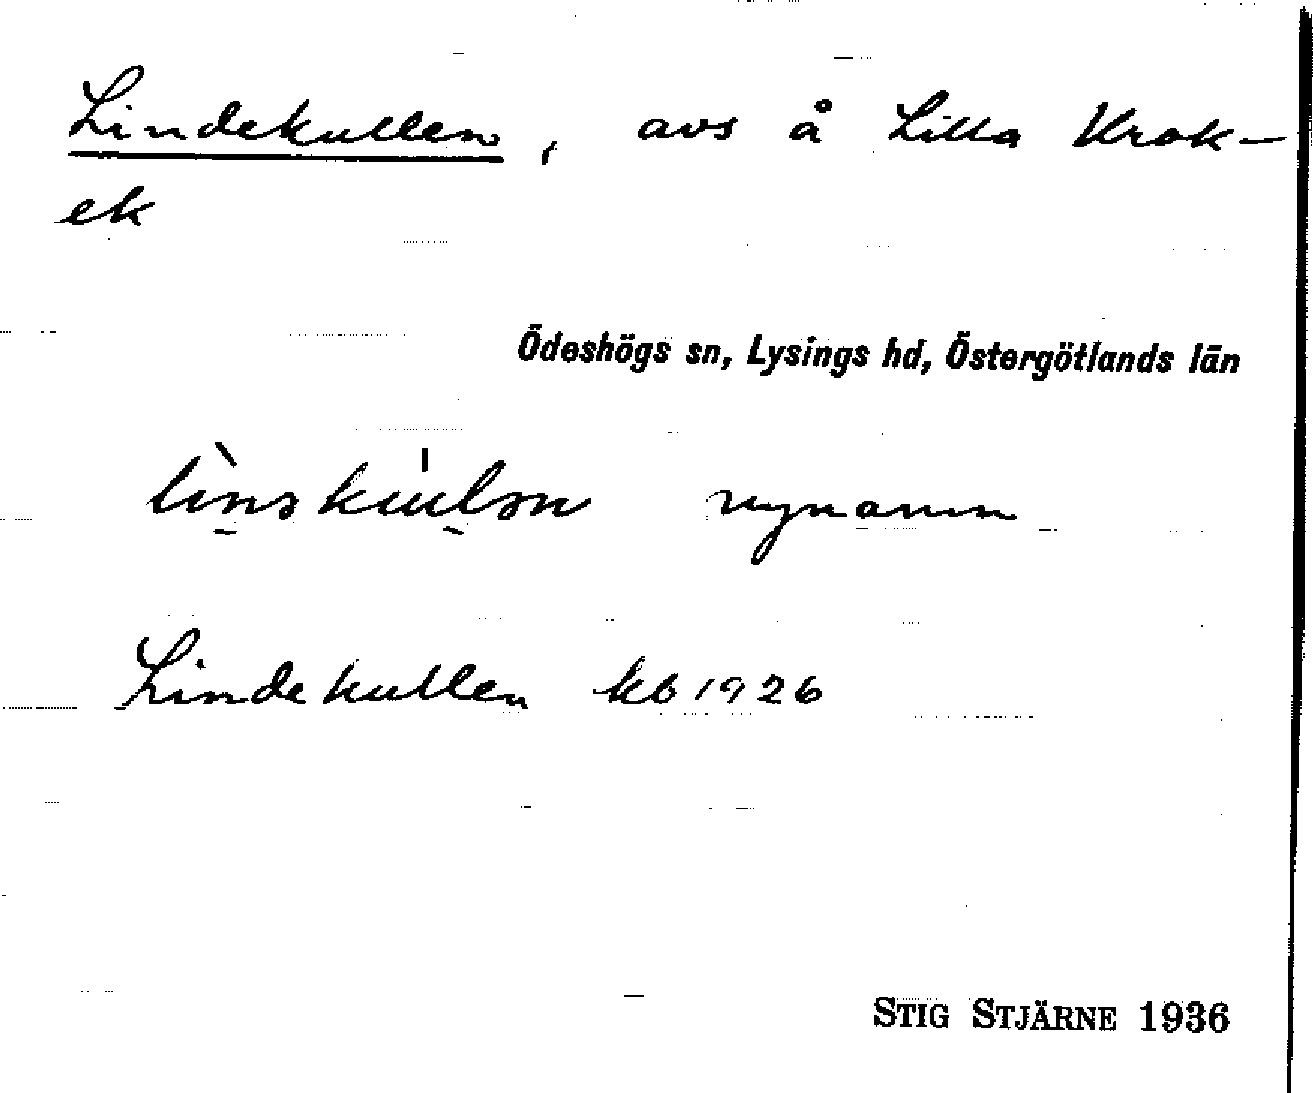 Lindekullen, avs å Lilla Krok-
ek
Ödeshögs sn, Lysings hd, Östergötlands län
nynamn
Lindekullen kb 1926
STIG STJÄRNE 1936